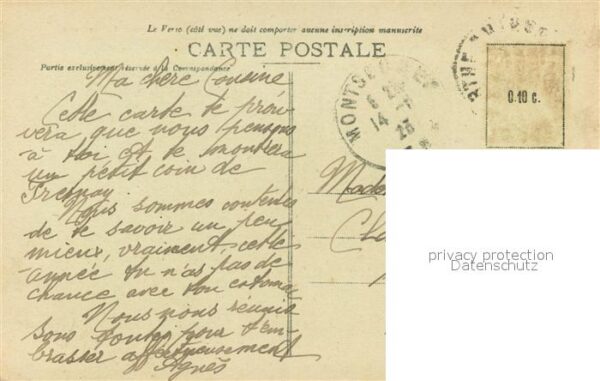 Le Verso (côté vue) ne doit comporter aucune inscription manuscrite
CARTE POSTALE
Partie exclusivement réservée à la Correspondance
0.10 c.
MONTS
14
25
Ma chere Cousine
Cette carte te prou
vera que nous pensons
à toi et te montrera
un petit coin de
Fresnay.
Nous sommes contentes
de te savoir un peu
mieux, vraiment, cette
année tu n'as pas de
chance avec ton estomac
Nous nous réunis
sons toutes pour t'em
brasser affectueusement
Agnès
Made
privacy protection
Datenschutz